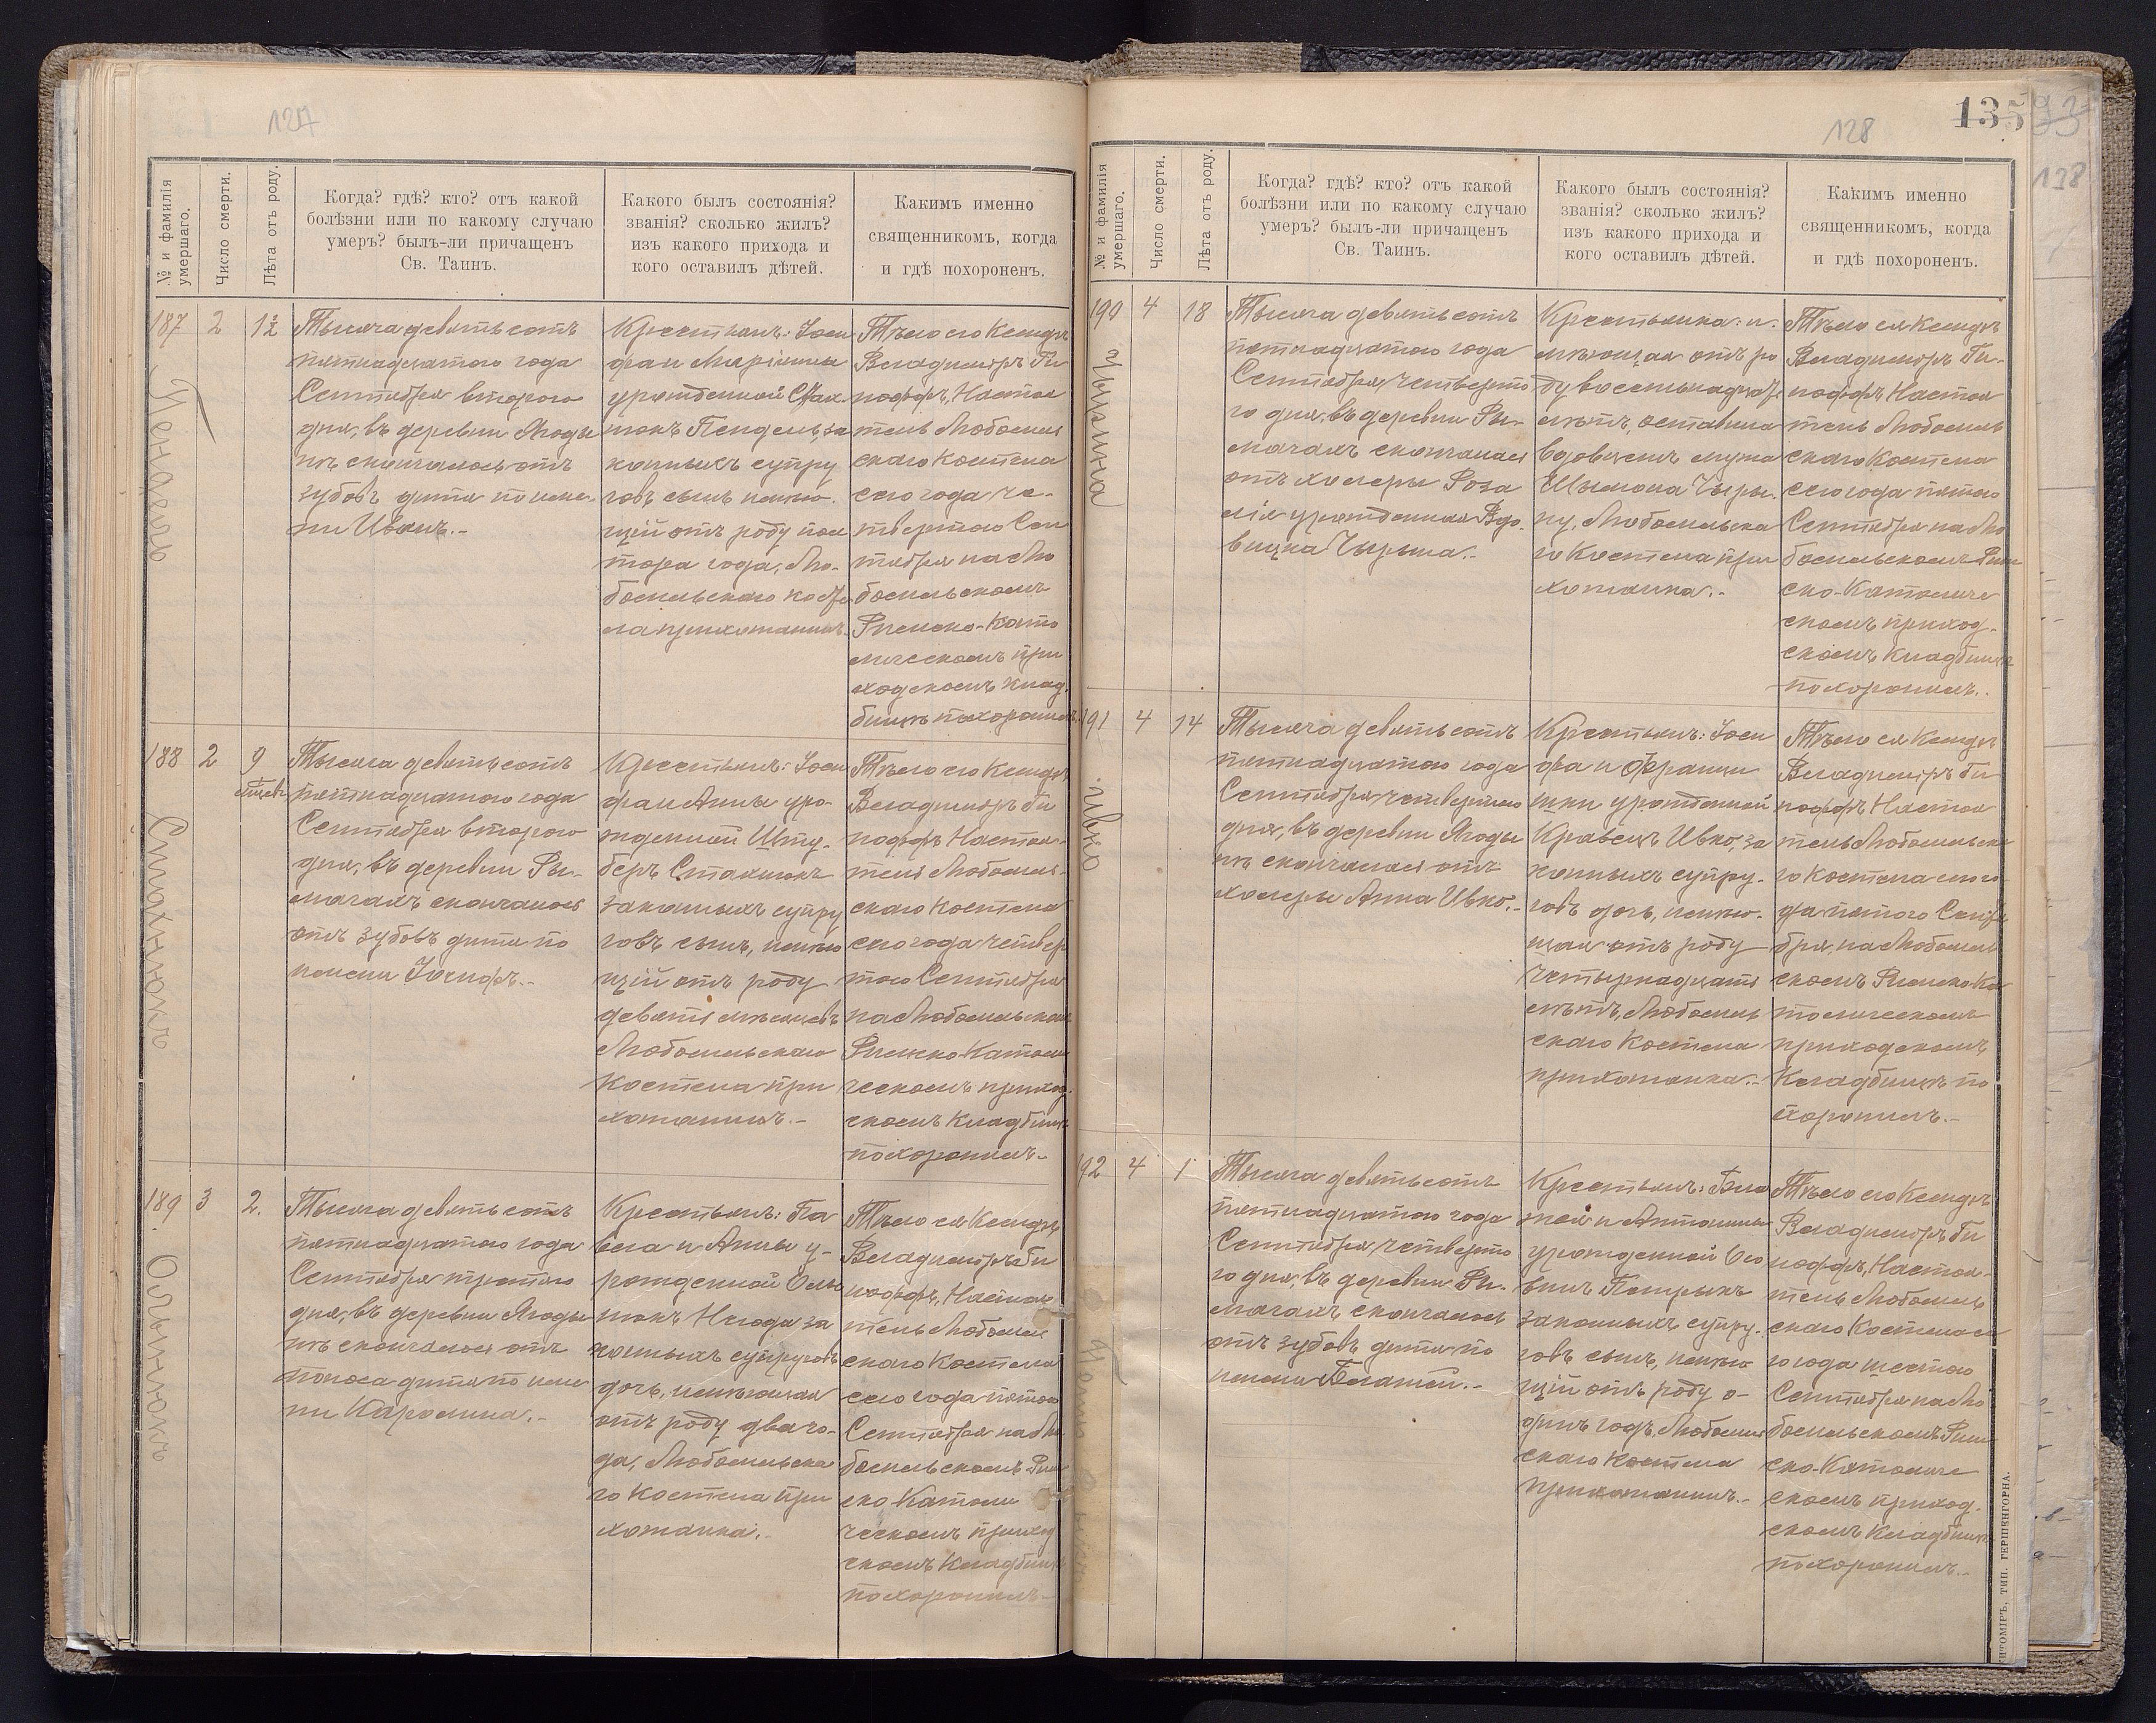 127
№ и фамилія
умершаго.
Число смерти.
Лѣта отъ роду.
Когда? гдѣ? кто? отъ какой
болѣзни или по какому случаю
умеръ? былъ-ли причащенъ
Св. Таинъ.
Какого былъ состоянія?
званія? сколько жилъ?
изъ какого прихода и
кого оставилъ дѣтей.
Какимъ именно
священникомъ, когда
и гдѣ похороненъ.
187
2
1½
Тысяча девятьсотъ
пятнадцатого года
Сентября второго
дня, въ деревни Ягоды
нѣ скончалось отъ
зубовъ дитя по име-
ни Иванъ.-
Крестьянъ: Іоси
фа и Маріянны
урожденной
Пендель, за
конныхъ супру
говъ сынъ, имѣю-
щій отъ роду пол
тора года, Лю-
бомльскаго косте
ла прихожанинъ.
Тѣло его Ксендзъ
Владиміръ
Настоя
тель Любомль
скаго Костела
сего года че-
твертого Сен
тября на Лю
бомльскомъ
Римско-Като
лическомъ при
ходскомъ клад
бищѣ похоронилъ.
188
2
9
мѣсяц.
Стахнюкъ
Тысяча девятьсотъ
пятнадцатого года
Сентября второго
дня, въ деревни Ры-
мачахъ скончалось
отъ зубовъ дитя по
имени Іосифъ.-
Крестьянъ: Іоси
фа и Анны уро-
жденной Шту-
беръ Стахнюкъ
законныхъ супру
говъ сынъ, имѣю
щій отъ роду
девять мѣсяцевъ
Любомльскаго
Костела при
хожанинъ.-
Тѣло его Ксендзъ
Владиміръ
Настоя-
тель Любомль-
скаго Костела
сего года четвер
того Сентября
на Любомльскомъ
Римско-Католи
ческомъ приход
скомъ Кладбищѣ
похоронилъ.-
189
3
2.
Тысяча девятьсотъ
пятнадцатого года
Сентября третого
дня, въ деревни Ягоды
нѣ скончалось отъ
поноса дитя по име
ни Каролина.-
Крестьянъ: Па
вла и Анны у-
рожденной
за
конныхъ супруговъ
дочь, имѣющая
отъ роду два го-
да, Любомльска
го Костела при
хожанка.-
Тѣло ея Ксендзъ
Владиміръ
Настоя
тель Любомль
скаго Костела
сего года пятого
Сентября на Лю
бомльскомъ Рим
ско Католи
ческомъ приход
скомъ Кладбищѣ
похоронилъ.-
135
128
138
№ и фамилія
умершаго.
Число смерти.
Лѣта отъ роду.
Когда? гдѣ? кто? отъ какой
болѣзни или по какому случаю
умеръ? былъ-ли причащенъ
Св. Таинъ.
Какого былъ состоянія?
званія? сколько жилъ?
изъ какого прихода и
кого оставилъ дѣтей.
Какимъ именно
священникомъ, когда
и гдѣ похороненъ.
190
4
18
Чырына
Тысяча девятьсотъ
пятнадцатого года
Сентября четверто
го дня, въ деревни Ры-
мачахъ скончалась
отъ холеры Роза
лія урожденная Вдо-
вицка Чырына.-
Крестьянка: и
мѣющая отъ ро
ду восемьнадцать
лѣтъ, оставила
вдовцемъ мужа
Шымона Чыры-
ну, Любомльска
го Костела при
хожанка.-
Тѣло ея Ксендзъ
Владиміръ
Настоя
тель Любомль
скаго Костела
сего года пятого
Сентября на Лю
бомльскомъ Рим
ско-Католиче
скомъ приход-
скомъ Кладбищѣ
похоронилъ.-
191
4
14
Ивко
Тысяча девятьсотъ
пятнадцатого года
Сентября четвертого
дня, въ деревни Ягоды
нѣ скончалась отъ
холеры Анна Ивко.-
Крестьянъ: Іоси
фа и Францы
шки урожденной
Кравецъ Ивко, за
конныхъ супру-
говъ дочь, имѣю-
щая отъ роду
четырнадцать
лѣтъ, Любомль
скаго Костела
прихожанка.-
Тѣло ея Ксендзъ
Владиміръ
Настоя
тель Любомльска
го Костела сего го-
да пятого Сентя
бря, на Любомль
скомъ Римско-Ка
толическомъ
приходскомъ
Кладбищѣ по
хоронилъ.-
192
4
1
Тысяча девятьсотъ
пятнадцатого года
Сентября четверто
го дня, въ деревни Ры-
мачахъ скончалось
отъ зубовъ дитя по
имени Блажей.-
Крестьянъ: Бла
жея и Антонины
урожденной
законныхъ супру-
говъ сынъ, имѣю
щій отъ роду о-
динъ годъ, Любомль
скаго Костела
прихожанинъ.-
Тѣло его Ксендзъ
Владиміръ
Настоя-
тель Любомль
скаго Костела се
го года шестого
Сентября на Лю
бомльскомъ Рим
ско-Католиче
скомъ приход-
скомъ Кладбищѣ
похоронилъ.-
ЖИТОМІРЪ, ТИП. ГЕРШЕНГОРНА.